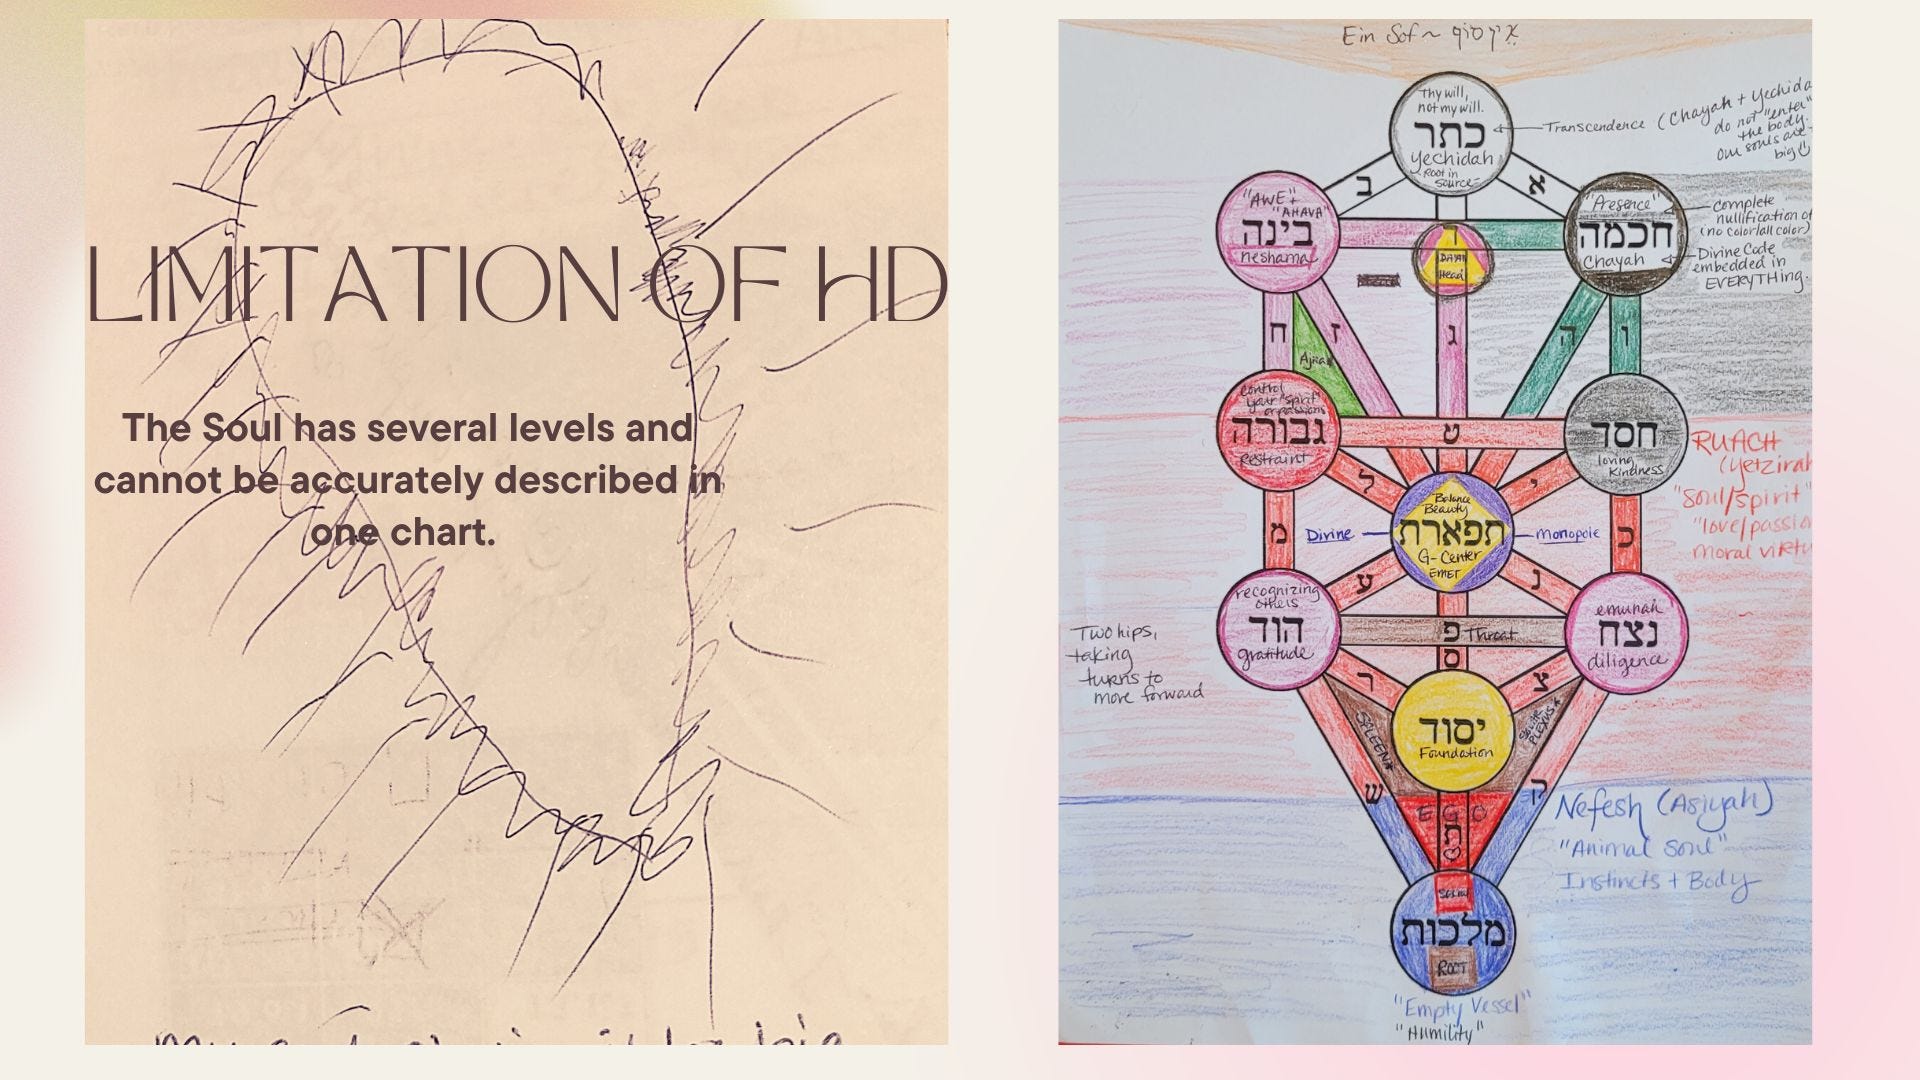 LIMITATION OF HD
The Soul has several levels and
cannot be accurately described in
one chart.
Ein Sof ~ אין סוף
Thy will,
not my will.
כתר
yechidah
Root in
source
Transcendence (Chayah + Yechida
do not "enter"
the body.
our souls are
big
ב
א
"AWE"+
"AHAVA"
בינה
neshama
Head
"Presence"
חכמה
Chayah
complete
nullification of
(no color/all color)
Divine Code
embedded in
EVERYTHing.
ח
ז
ג
ה
ו
Ajna
control
your "spirit"
or passions
גבורה
Restraint
ט
חסד
loving
kindness
RUACH
(Yetzirah
"Soul/spirit"
"love/passio
moral virtu
ל
י
מ
Divine
Balance
Beauty
תפארת
G-Center
EMET
Monopole
כ
ע
נ
recognizing
others
הוד
gratitude
פ Throat
ס
emunah
נצח
diligence
Two hips,
taking
turns to
move forward
ר
צ
SPLEEN
SOLAR
PLEXUS
יסוד
Foundation
ש
ק
EGO
ת
Nefesh (Asiyah)
"Animal soul"
Instincts + Body
מלכות
ROOT
"Empty Vessel"
"Humility"